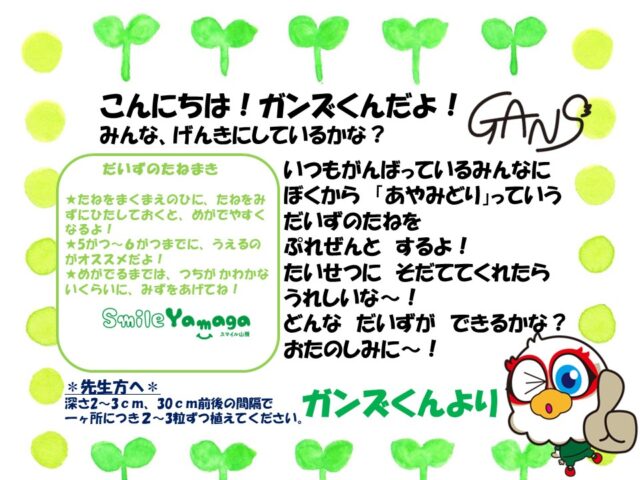 こんにちは！ガンズくんだよ！
みんな、げんきにしているかな？
GANS
だいずのたねまき
★たねをまくまえのひに、たねをみ
ずにひたしておくと、めがでやすく
なるよ！
★5がつ～6がつまでに、うえるの
がオススメだよ！
★めがでるまでは、つちがかわかな
いくらいに、みずをあげてね！
Smile Yamaga
スマイル山鹿
いつもがんばっているみんなに
ぼくから「あやみどり」っていう
だいずのたねを
ぷれぜんと　するよ！
たいせつに　そだててくれたら
うれしいな～！
どんな　だいずが　できるかな？
おたのしみに～！
＊先生方へ＊
深さ2～3ｃｍ、30ｃｍ前後の間隔で
一ヶ所につき２～3粒ずつ植えてください。
ガンズくんより